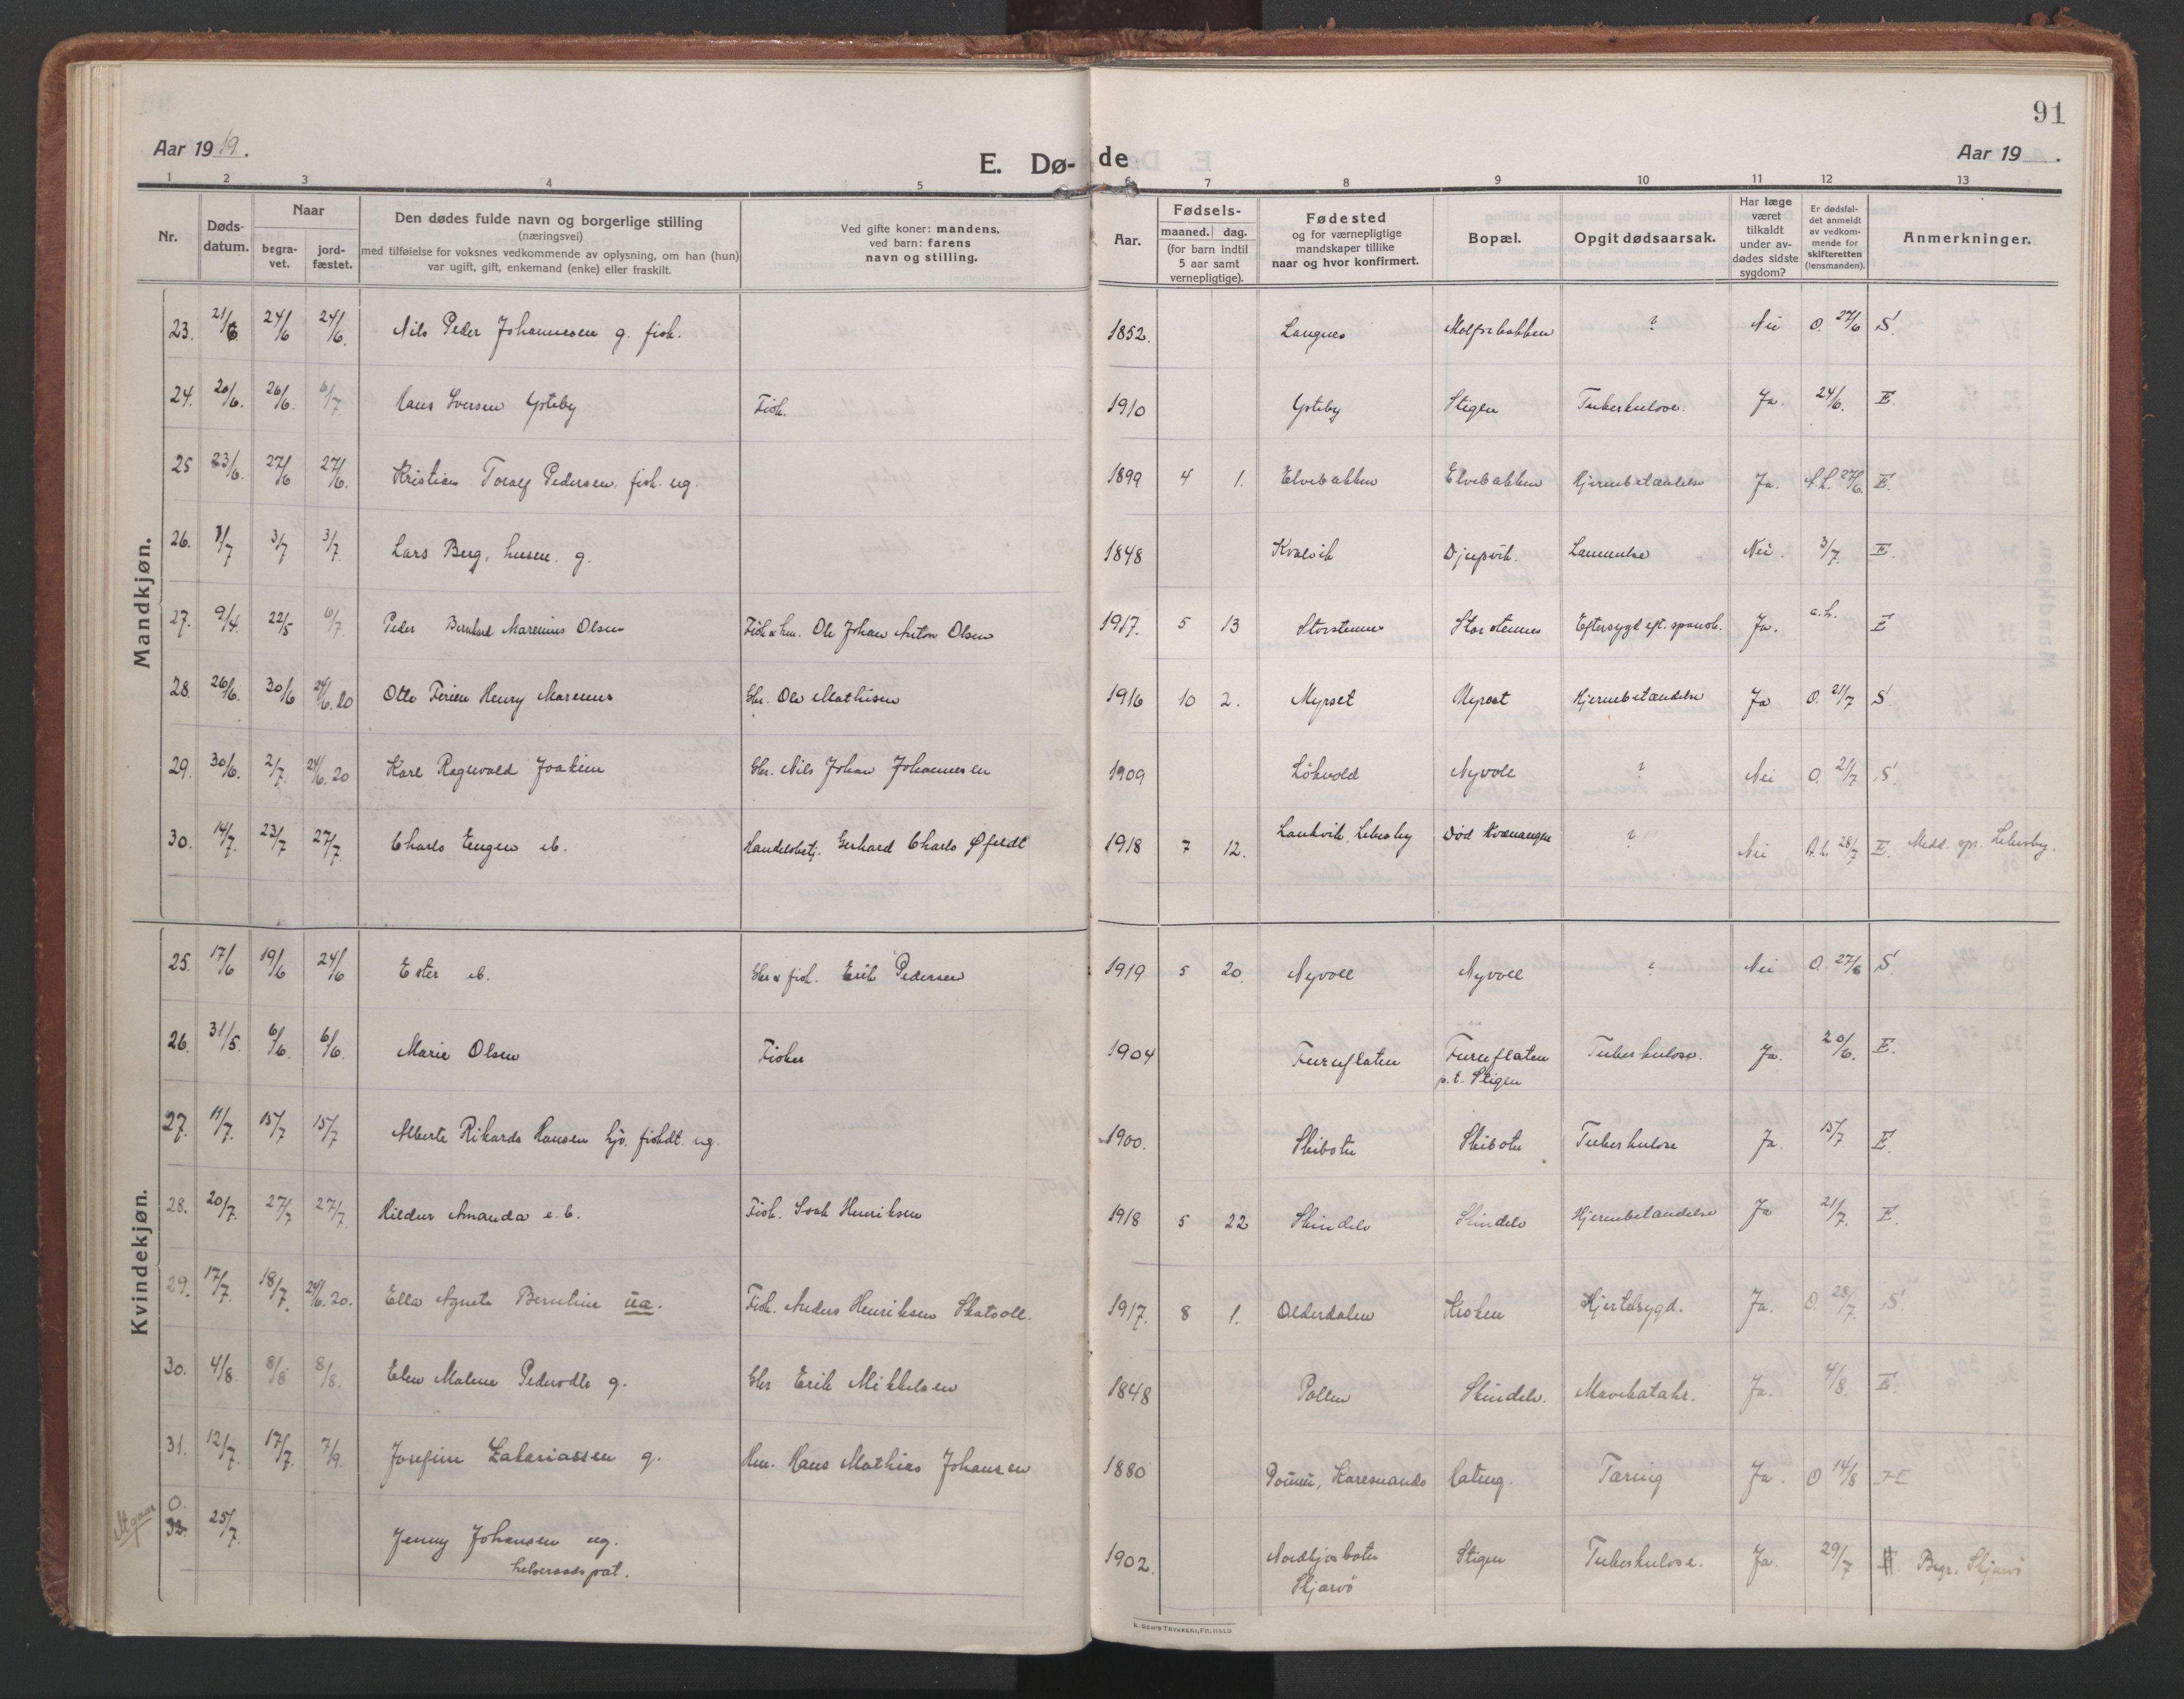 91
Aar 1919.
E. Dø- de
Aar 19 .
1 2 3 4 5 6 7 8 9 10 11 12 13
Nr.
Døds-
datum.
Naar
begra-
vet.
jord-
fæstet.
Den dødes fulde navn og borgerlige stilling
(næringsvei)
med tilføielse for voksnes vedkommende av oplysning, om han (hun)
var ugift, gift, enkemand (enke) eller fraskilt.
Ved gifte koner: mandens,
ved barn: farens
navn og stilling.
Aar.
Fødsels-
maaned. dag.
(for barn indtil
5 aar samt
vernepligtige).
Fødested
og for værnepligtige
mandskaper tillike
naar og hvor konfirmert.
Bopæl.
Opgit dødsaarsak.
Har læge
været
tilkaldt
under av-
dødes sidste
sygdom?
Er dødsfal-
det anmeldt
av vedkom-
mende for
skifteretten
(lensmanden).
Anmerkninger.
Mandkjøn.
23. 21/6 24/6 24/6. Nils Peder Johannesen g. fisk. 1852. Langnes ? Nei O. 27/6 S.
24. 20/6. 26/6. 6/7 Hans Iversen Ysteby Fisk. 1910 Ysteby Stigen Tuberkulose. Ja. 24/6. E.
25 23/6. 27/6 27/6. Kristian Toralf Pedersen, fisk. ug. 1899 4 1. Elvebakken Elvebakken Hjernebetændelse Ja. 27/6. E.
26. 1/7 3/7 3/7. Lars Berg, husm. g. 1848 Kvalvik Djupvik. Lammelse Nei. 3/7. E.
27. 9/4. 22/5 6/7 Peder Bernhard Marenius Olsen Fisk & hm. Ole Johan Anton Olsen 1917. 5 13 Storstennes Storstennes Eftersygd eft. spansk. Ja. a.h. E
28. 26/6. 30/6 24/6.20 Otto Henry Marenus Gbr. Ole Mathisen 1916 10 2. Myrset Myrset Hjernebetændelse Ja O. 21/7 S.
29. 30/6. 2/7. 24/6.20 Karl Ragnvald Joakim Gbr. Nils Johan Johannesen 1909 Løkvold Nyvoll ? Nei O. 21/7 S.
30. 14/7. 23/7 27/7. Charls Eugen eb. Handelsbetj. Gerhard Charls Øfeldt 1918 7 12. Lebesby Død Kvænangen ? Nei A.L. 28/7 E. Medd. spr. Lebesby.
Kvindekjøn.
25. 17/6 19/6 24/6 Ester eb. Gbr & fisk. Erik Pedersen 1919 5 20. Nyvoll Nyvoll ? Nei O. 27/6 S.
26. 31/5. 6/6. 6/6. Marie Olsen Fisker 1904 Furuflaten Furuflaten Tuberkulose. Ja. 20/6. E.
p.t. Stigen
27. 11/7. 15/7 15/7 Alberte Rikarda Hansen hjv. fiskdt. ug. 1900. Skibotn Skibotn Tuberkulose Ja. 15/7 E.
28. 20/7. 27/7 27/7. Hildur Amanda e.b. Fisk. Isak Henriksen 1918 5 22 Skindelv Skindelv Hjernebetændelse Ja 21/7. E.
29. 17/7. 18/7. 24/6.20. Ella Agnete Berntine ua. Fisk. Anders Henriksen Skatvoll. 1917. 8 1. Olderdalen Kroken Hjertesygd. Ja. O. 28/7. S.
30. 4/8. 8/8 8/8. Elen Malene Pedersdtr g. Gbr Erik Mikkelsen 1848 Pollen Skindelv. Mavekatahr. Ja. 4/8. E.
31. 12/7. 17/7. 7/9. Josefine Zakariassen g. Hm. Hans Mathias Johansen 1880 Karesuando Tæring Ja. O 14/8
Utgaar 0. 32. 25/7. Jenny Johansen ug. 1902. Nordkjosbotn Stigen Tuberkulose. Ja. 29/7 Begr. Skjærvö
helseraadspat. Skjærvö